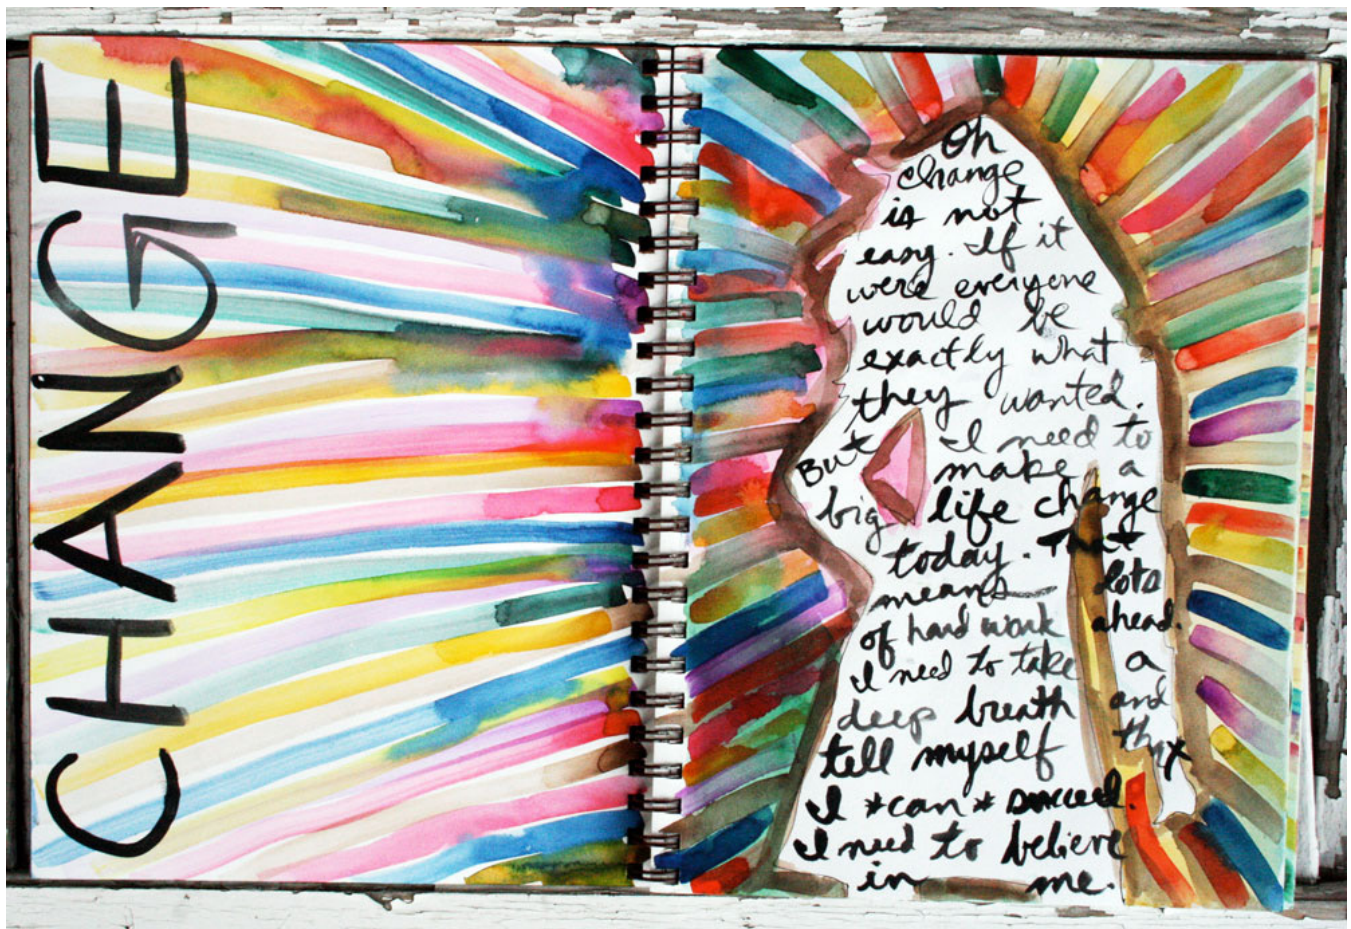 CHANGE
Oh
change
is not
easy. If it
were everyone
would be
exactly what
they wanted.
But I need to
make a
big life change
today. That
means lots
of hard work ahead.
I need to take a
deep breath and
tell myself that
I *can* succeed.
I need to believe
in me.